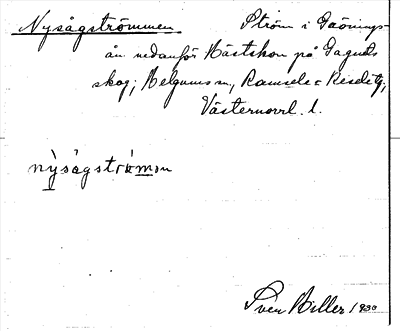 Nysågströmmen Ström i Gåönings-
ån nedanför Hästskon på Gagnets
skog; Helgums sn, Ramsele o Resele tg,
Västernorrl. l.
nỳságströmən
Sven Hiller 1930